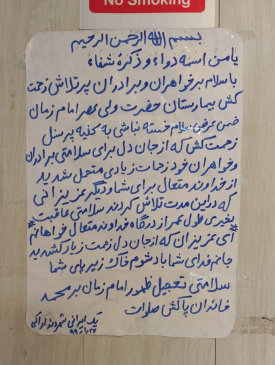 No Smoking
بسم الله الرحمن الرحیم
یا من اسمه دواء و ذکره شفاء
با سلام بر خواهران و برادران پرتلاش زحمت
کش بیمارستان حضرت ولی عصر امام زمان
ضمن عرض سلام خسته نباشی به کلیه پرسنل
زحمت کش که از جان دل برای سلامتی برادران
و خواهران خود زحمات زیادی متحمل شدید
از خداوند متعال برای شما و دیگر عزیزانی
که در این مدت تلاش کردند سلامتی عاقبت
بخیری طول عمر از درگاه خداوند متعال خواهانم
ای عزیزان که از جان دل زحمت زیاد کشدید
جانم فدای شما باد شوم خاک زیر پای شما
سلامتی تعجیل ظهور امام زمان بر محمد
خاندان پاکش صلوات
یک ایرانی شهروند اراکی